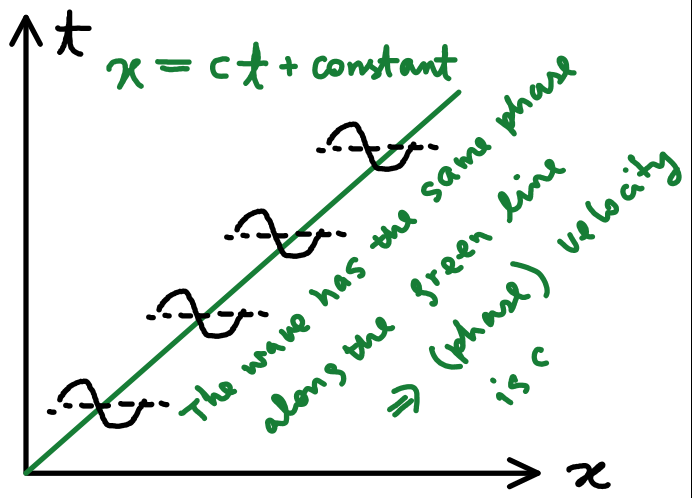 t
x = ct + constant
The wave has the same phase
along the green line
⇒ (phase) velocity
is c
x